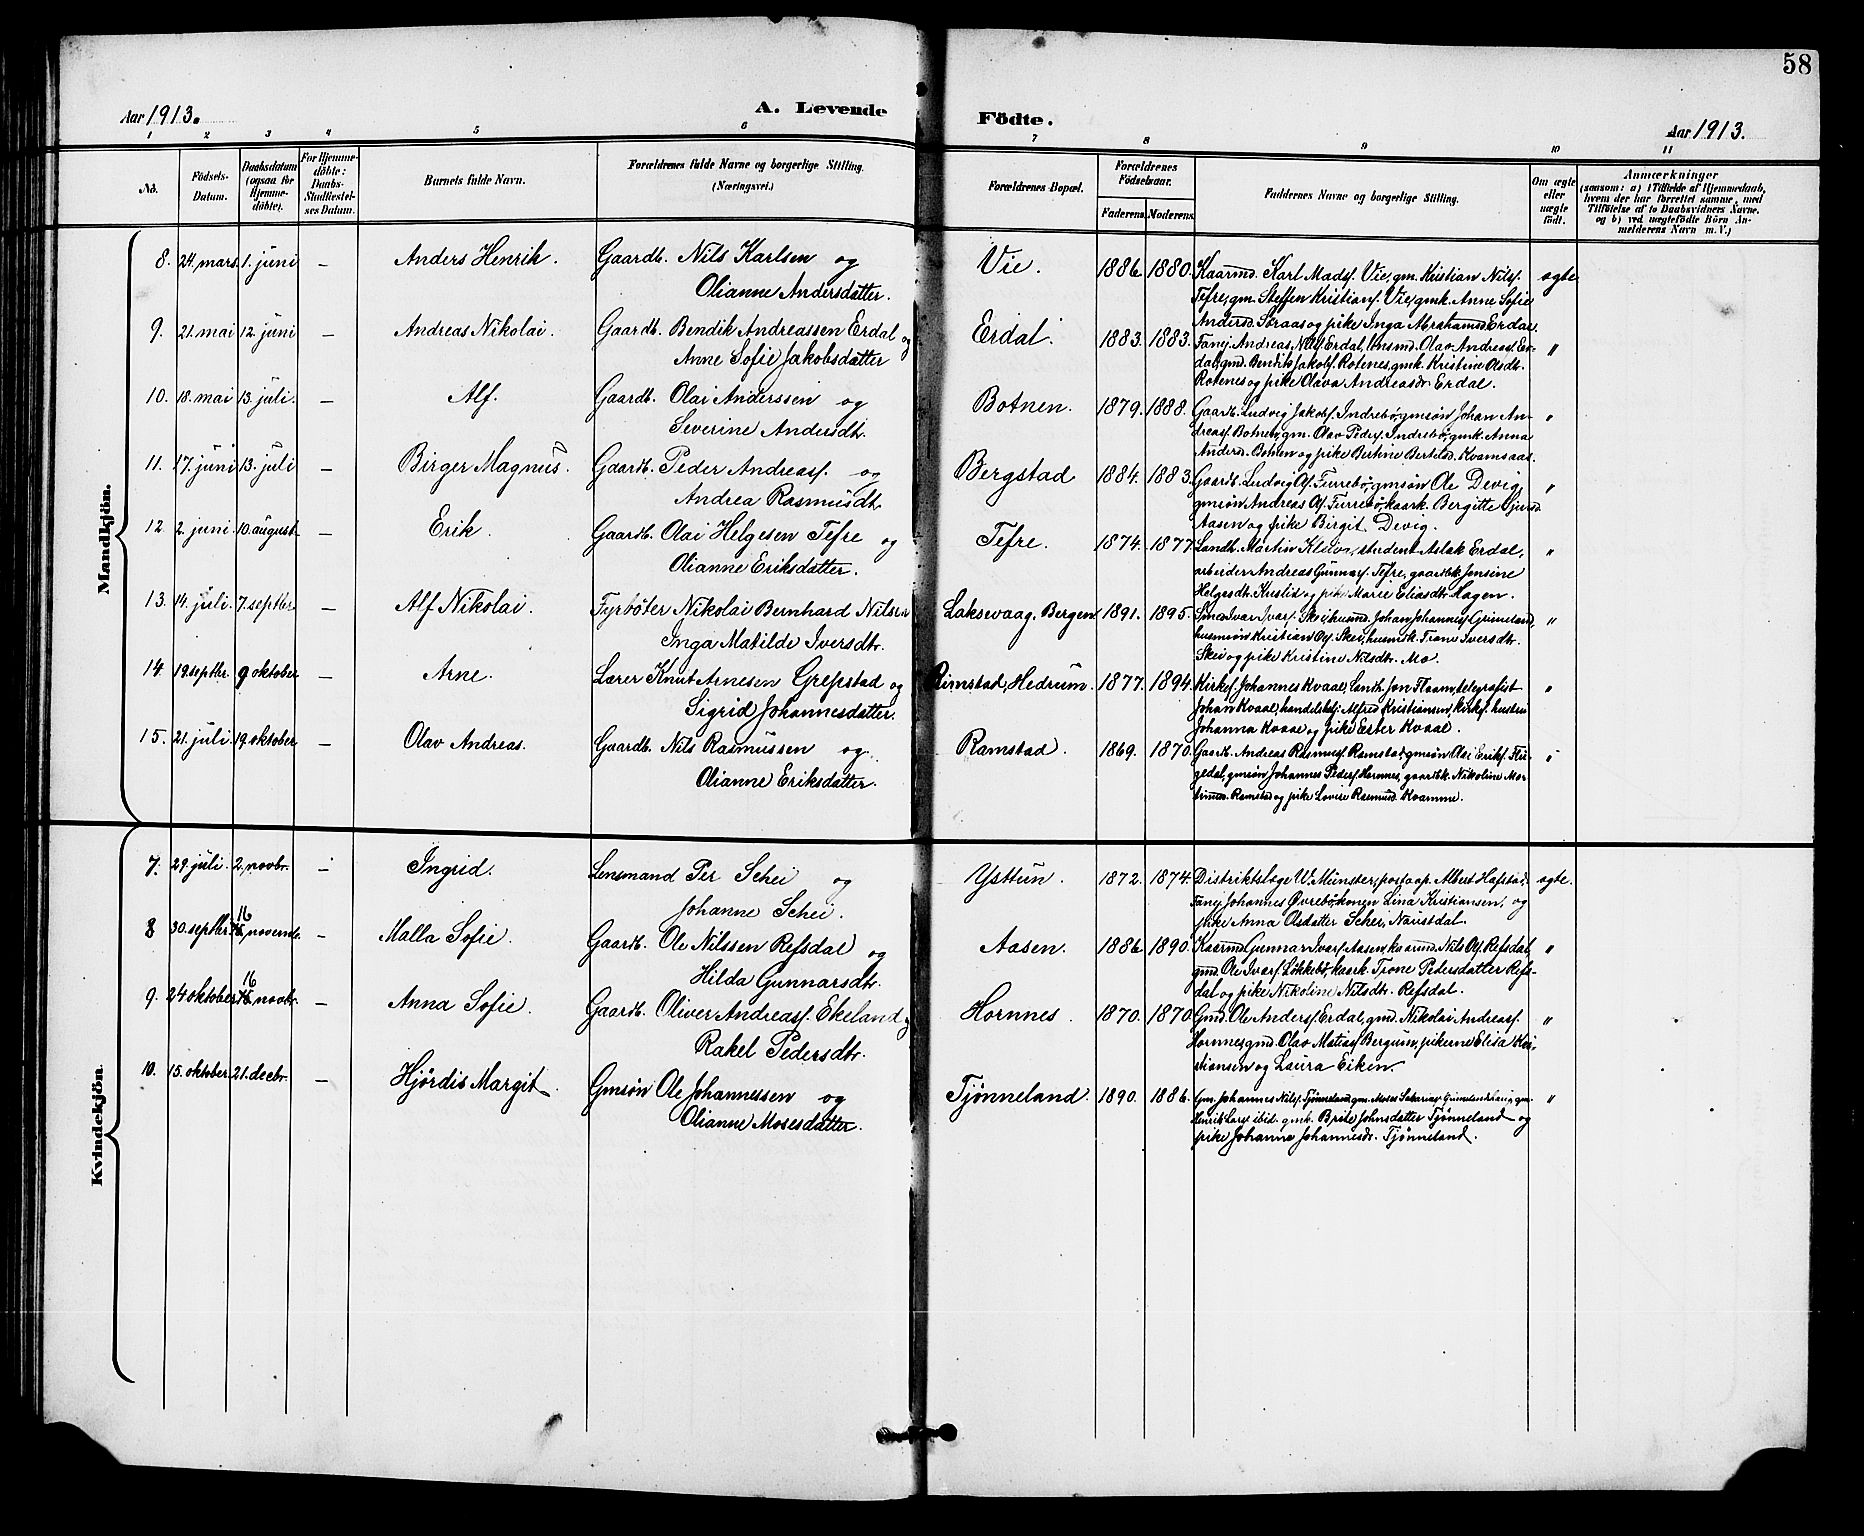 58
Aar 1913.
A. Levende
Födte.
Aar 1913.
1 2 3 4 5 6 7 8 9 10 11
No.
Födsels-
Datum.
Daabsdatum
(ogsaa for
Hjemme-
döbte).
For Hjemme-
döbte:
Daabs-
Stadfæstel-
ses Datum.
Barnets fulde Navn.
Forældrenes fulde Navne og borgerlige Stilling.
(Næringsvei.)
Forældrenes Bopæl.
Forældrenes
Födselsaar.
Faderens. Moderens.
Faddernes Navne og borgerlige Stilling.
Om ægte
eller
uægte
födt.
Anmærkninger
(saasom: a) i Tilfælde af Hjemmedaab,
hvem der har forrettet samme, med
Tilföielse af to Daabsvidners Navne.
og b) ved uægtefödte Börn An-
melderens Navn m. V.)
Mandkjön.
8. 24. mars. 1. juni – Anders Henrik. Gaardb. Nils Karlsen og
Olianne Andersdatter.
Vie. 1886. 1880. Kaarmd. Karl Madsf. Vie, gm. Kristian Nilsf.
Tefre, gm. Steffen Kristiansf. Vie, gmk. Anne Sofie
Andersd. Soraas og pike Inga Abrahamsd. Erdal.
ægte
9. 21. mai 12. juni – Andreas Nikolai. Gaardb. Bendik Andreassen Erdal og
Anne Sofie Jakobsdatter
Erdal. 1883. 1883. Fanj. Andreas Nilsf. Erdal, Andreasf. Er-
dal, gmd. Bendik Jakobf. Rotenes, gmk. Kristine Olsdtr.
Rotenes og pike Olava Andreasdr. Erdal.
"
10. 18. mai 13. juli. – Alf. Gaardb. Olai Anderssen og
Severine Andersdt.
Botnen. 1879. 1888. Gaardb. Ludvig Jakobf. Indrebö, gmsön Johan An-
dreasf. Botnen, gm. Olav Pedersf. Indrebö, gmk. Anna
Andersd. Botnen og pike Bertine Bertelsd. Kvamsaas.
"
11. 17. juni 13. juli – Birger Magnus. Gaardb. Peder Andreasf. og
Andrea Rasmusdt.
Bergstad 1884. 1883. Gaardb. Ludvig Olf. Furrebö, gmsön Ole Devig,
gmsön Andreas Olf. Furrebö, kaark. Bergitte Gjersd.
Aasen og pike Birgit Devig.
"
12 2. juni 10. august – Erik. Gaardb. Olai Helgesen Tefre og
Olianne Eriksdatter.
Tefre. 1874. 1877. Landh. Martin Kleiva, student Aslak Erdal,
arbeider Andreas Gunnarf. Tefre, gaardbk. Jensine
Helgesdt. Kvslid og pike Marie Eliasdt. Hagen.
"
13. 14. juli. 7. septbr. – Alf Nikolai. Fyrböter Nikolai Bernhard Nilsen
Inga Matilde Iversdtr.
Laksevaag, Bergen 1891. 1895. Smed Ivar Ivarf. Skei, husmd. Johan Johannesf. Grimeland,
husmsön Kristian Olf. Skei, husmk. Trone Iversdtr.
Skei og pike Kristine Nilsdtr. Mo.
"
14. 19. septbr. 9 oktober – Arne. Lærer Knut Arnesen Grepstad og
Sigrid Johannesdatter.
Rimstad, Hedrum. 1877. 1894. Kirkef. Johannes Kvaal, landh. Jon Flaam, telegrafist
Johan Kvaal, handelsbtj. Alfred Kristiansen, kirkef. hustru
Johanna Kvaal og pike Ester Kvaal.
"
15. 21. juli 19. oktober – Olav Andreas. Gaardb. Nils Rasmussen og
Olianne Eriksdatter.
Ramstad. 1869. 1870. Gaardb. Andreas Rasmusf. Ramstad, gmsön Olai Eriksf. Fri-
gedal, gmsön Johannes Pedersf. Hornnes, gaardbk. Nikoline Mor-
tinusd. Ramstad og pike Lovise Rasmusd. Kvamme.
"
Kvindekjön.
7. 29. juli. 2. novbr. – Ingrid. Lensmand Per Schei og
Johanne Schei.
Ysttun. 1872. 1874. Distriktslæge W. Münster, postaap. Albert Hafstad,
Fanj. Johannes Øvrebö, konen Lina Kristiansen, og
pike Anna Olsdatter Schei, Naustdal.
ægte.
8 30. septbr. 16 novembr. – Malla Sofie. Gaardb. Ole Nilssen Refsdal og
Hilda Gunnarsdtr.
Aasen. 1886. 1890. Kaarmd. Gunnar Ivarf. Aasen, kaarmd. Nils Olf. Refsdal,
gmd. Ole Ivarf. Løkkebö, kaark. Trone Pedersdatter Refs-
dal og pike Nikoline Nilsdtr. Refsdal.
"
9. 24 oktober 16 novbr. – Anna Sofie. Gaardb. Oliver Andreasf. Ekeland og
Rakel Pedersdtr.
Hornnes. 1870. 1870. Gmd. Ole Andersf. Erdal, gmd. Nikolai Andreasf.
Hornnes, gmd. Olav Matiasf. Bergum, pikerne Elisa Kri-
stiansen og Laura Eiken.
"
10. 15. oktober 21. decbr. – Hjørdis Margit. Gmsön Ole Johannessen og
Olianne Mosesdatter.
Tjønneland. 1890. 1886. Gm. Johannes Nilsf. Tjønneland, gm. Moses Sakariasf. Grimelandshaug, gm.
Henrik Larsf. ibid. gmk. Brite Johnsdatter Tjønneland og
pike Johanna Johannesdr. Tjønneland.
"